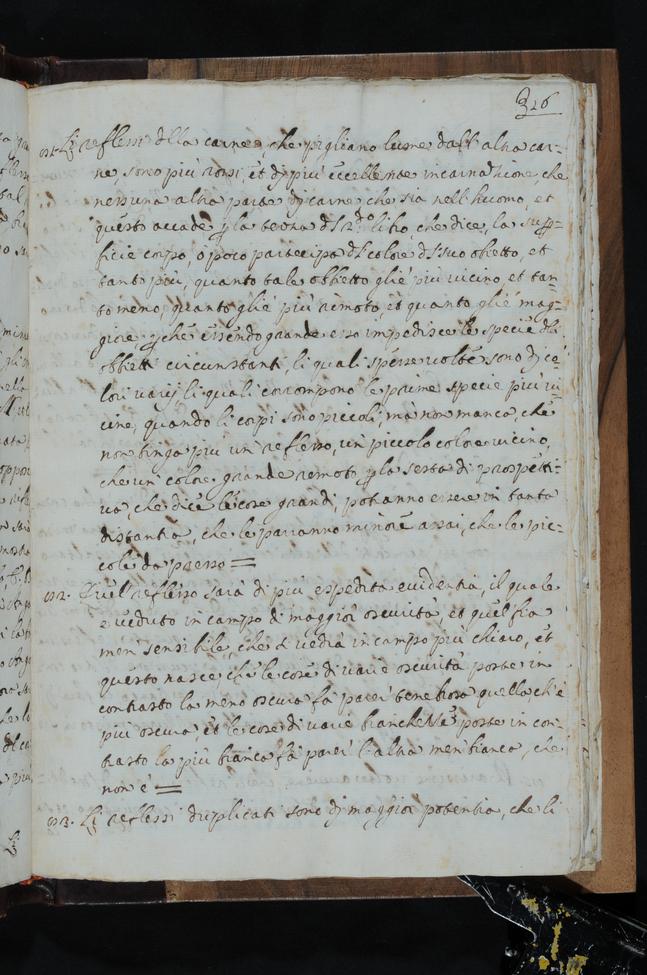 326
Li reflessi d̃lla carne, che pigliano lume dall'altra car-
ne sono più rossi, et dj più eccellente incarnatione, che
nessuna altra parte dj carne che sia nell'huomo, et
questo accade la terza d̃l 2.do libro, che dice, la
ficie corpo, o poco partecipa d̃l colore d̃l suo obietto, et
tant più, quanto tale obbietto gliè più vicino, et tan-
to meno, quanto gliè più remoto, et quanto gliè mag-
giore, essendo grande esso impedisce le specie d̃lli
obbietti circunstanti, li quali spesse volte sono dj co-
lori varij li quali corrompono le prime specie più vi-
cine, quando li corpi sono piccoli, mà non manca, che
non tinga più un reflesso, un piccolo colore vicino,
che un colore grande remoto la sesta di prospetti-
va, che dice le cose grandi, potranno essere in tanta
distantia, che le parranno minore assai, che le pic-
cole da presso =
Quel reflesso sarà di più espedita evidentia, il quale
è veduto in campo di maggior oscurità, et quel fia
men' sensibile, che si vedrà in campo più chiaro, et
questo nasce, che le cose di varie oscurità poste in
contrasto la meno oscura fà parer tenebrosa quella, ch'è
più oscura, et le cose di varie bianchezze poste in con-
trasto la più bianca fà parer l'altra men bianca, che
non è =
Li reflessi duplicati sono dj maggior potentia, che li